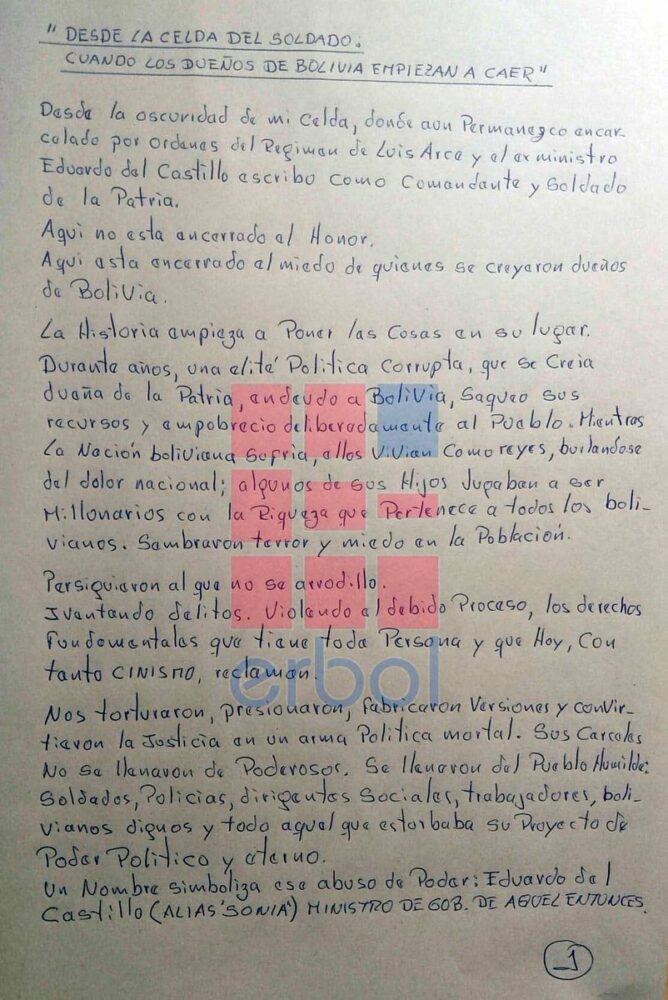 "DESDE LA CELDA DEL SOLDADO.
CUANDO LOS DUEÑOS DE BOLIVIA EMPIEZAN A CAER"
Desde la oscuridad de mi Celda, donde aun Permanezco encar-
celado por ordenes del Regimen de Luis Arce y el ex ministro
Eduardo del Castillo escribo como Comandante y Soldado
de la Patria.
Aqui no esta encerrado el Honor.
Aqui esta encerrado el miedo de quienes se creyeron dueños
de Bolivia.
La Historia empieza a Poner las Cosas en su lugar.
Durante años, una elité Politica Corrupta, que se Creia
dueña de la Patria, endeudo a Bolivia, Saqueo sus
recursos y empobrecio deliberadamente al Pueblo. Mientras
La Nación boliviana sufria, ellos Vivian Como reyes, burlandose
del dolor nacional; algunos de sus Hijos Jugaban a ser
Millonarios con la Riqueza que Pertenece a todos los boli-
vianos. Sembraron terror y miedo en la Población.
Persiguieron al que no se arrodillo.
Iventando delitos. Violando el debido Proceso, los derechos
fundamentales que tiene toda Persona y que Hoy, Con
tanto CINISMO, reclaman.
Nos torturaron, presionaron, fabricaron Versiones y convir-
tieron la Justicia en un arma Politica mortal. Sus Carceles
No se llenaron de Poderosos. Se llenaron del Pueblo Humilde:
Soldados, Policias, dirigentes Sociales, trabajadores, boli-
vianos dignos y todo aquel que estorbaba su Proyecto de
Poder Politico y eterno.
Un Nombre simboliza ese abuso de Poder: Eduardo del
Castillo (ALIAS 'SONIA') MINISTRO DE GOB. DE AQUEL ENTONCES.
1
erbol